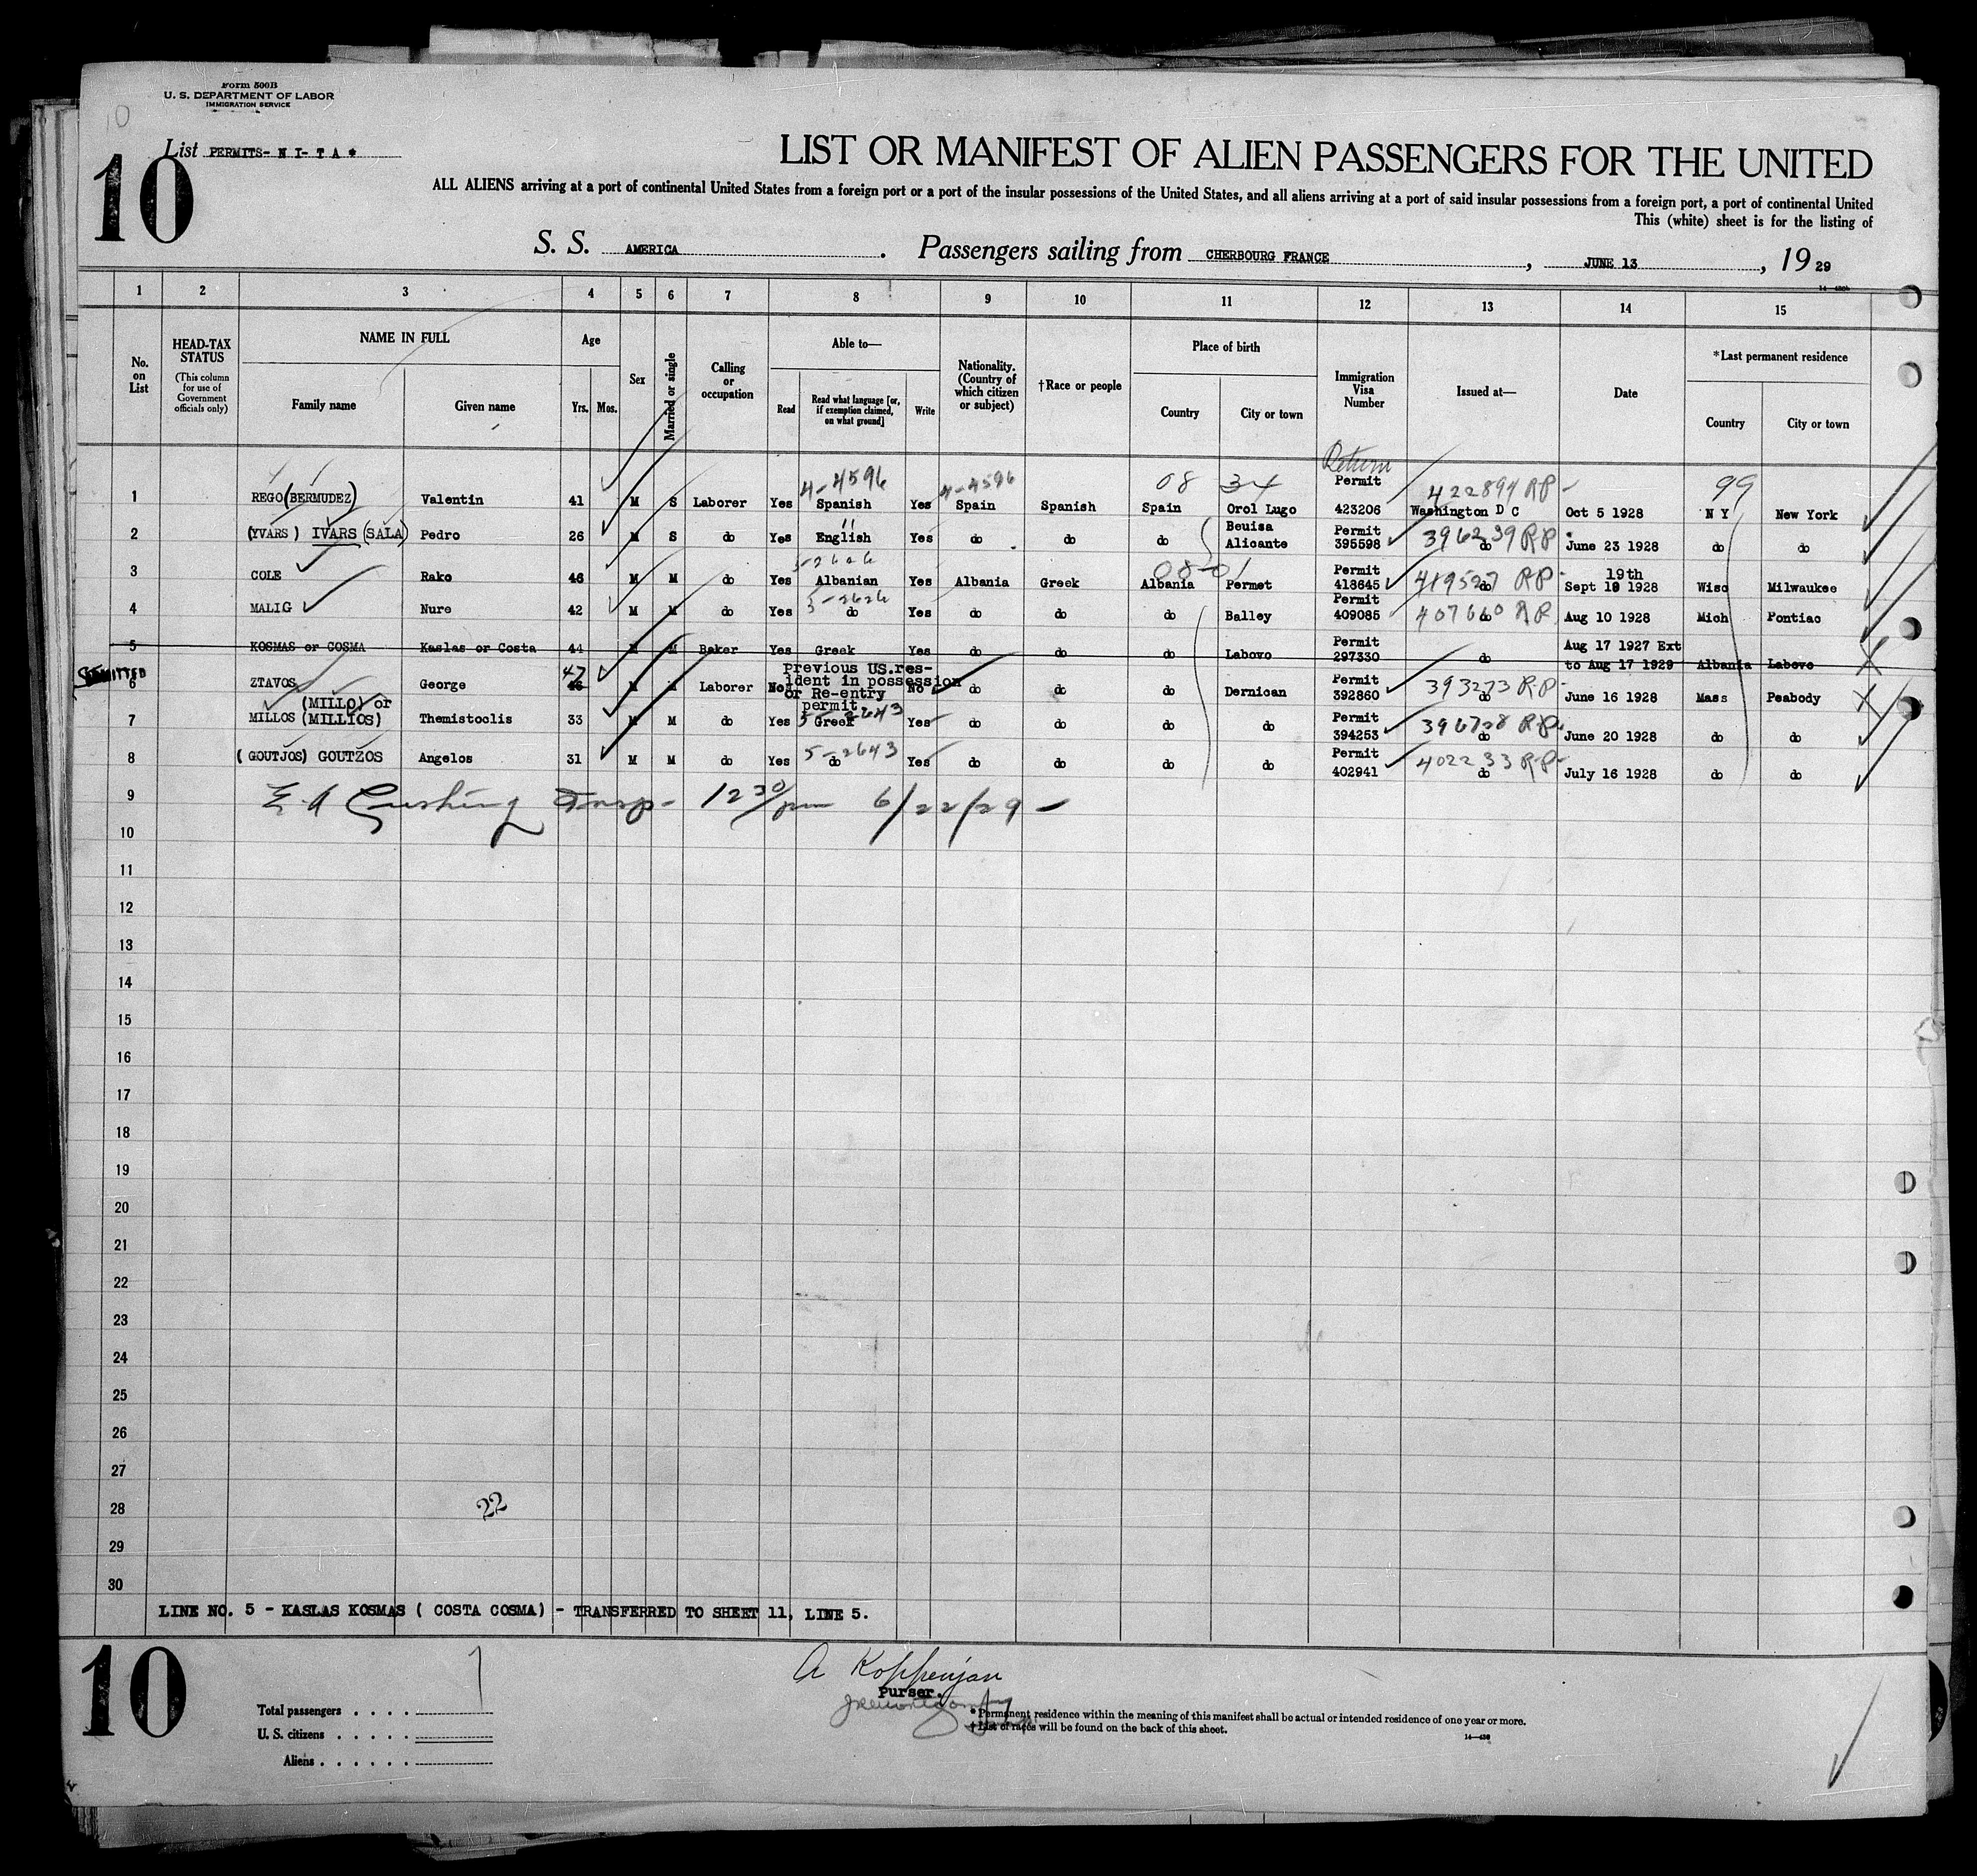 10
Form 500B
U. S. DEPARTMENT OF LABOR
IMMIGRATION SERVICE
List PERMITS- N I- T A *
10
LIST OR MANIFEST OF ALIEN PASSENGERS FOR THE UNITED
ALL ALIENS arriving at a port of continental United States from a foreign port or a port of the insular possessions of the United States, and all aliens arriving at a port of said insular possessions from a foreign port, a port of continental United
This (white) sheet is for the listing of
S. S. AMERICA. Passengers sailing from CHERBOURG FRANCE, JUNE 13, 19 29
1 2 3 4 5 6 7 8 9 10 11 12 13 14 15
No. on List
HEAD-TAX STATUS (This column for use of Government officials only)
NAME IN FULL
Family name Given name
Age
Yrs. Mos.
Sex
Married or single
Calling or occupation
Able to—
Read Read what language [or, if exemption claimed, on what ground] Write
Nationality. (Country of which citizen or subject)
†Race or people
Place of birth
Country City or town
Immigration Visa Number
Issued at—
Date
*Last permanent residence
Country City or town
Return
4-4596 4-4596 08 34 Permit 422894 RP- 99
1 REGO (BERMUDEZ) Valentin 41 M S Laborer Yes Spanish Yes Spain Spanish Spain Orol Lugo 423206 Washington D C Oct 5 1928 N Y New York
" Beuisa Permit 396239 RP
2 (YVARS) IVARS (SALA) Pedro 26 M S do Yes English Yes do do do Alicante 395598 do June 23 1928 do do
5-2626 08-01 Permit 419527 RP- 19th
3 COLE Rako 46 M M do Yes Albanian Yes Albania Greek Albania Permet 418645 do Sept 19 1928 Wisc Milwaukee
5-2626 Permit 407660 RP
4 MALIG Nure 42 M M do Yes do Yes do do do Balley 409085 do Aug 10 1928 Mich Pontiac
5 KOSMAS or COSMA Kaslas or Costa 44 M M Baker Yes Greek Yes do do do Labovo Permit 297330 do Aug 17 1927 Ext to Aug 17 1929 Albania Labovo
47 previous US.res-
6 ZTAVOS George 46 M M Laborer No ident in possession No do do do Dernican Permit 392860 393273 RP- do June 16 1928 Mass Peabody
or Re-entry
permit
(MILLO) or
7 MILLOS (MILLIOS) Themistoclis 33 M M do Yes 5-2643 Greek Yes do do do do Permit 394253 396728 RP. do June 20 1928 do do
8 (GOUTJOS) GOUTZOS Angelos 31 M M do Yes 5-2643 do Yes do do do do Permit 402941 402233 RP- do July 16 1928 do do
9 E A Cushing Insp- 12 30/pm 6/22/29 -
10
11
12
13
14
15
16
17
18
19
20
21
22
23
24
25
26
27
28 22
29
30
LINE NO. 5 - KASLAS KOSMAS ( COSTA COSMA) - TRANSFERRED TO SHEET 11, LINE 5.
10
A Koppenjan
Purser.
Total passengers . . . .
U. S. citizens . . . . .
Aliens . . . . . .
* Permanent residence within the meaning of this manifest shall be actual or intended residence of one year or more.
† List of races will be found on the back of this sheet.